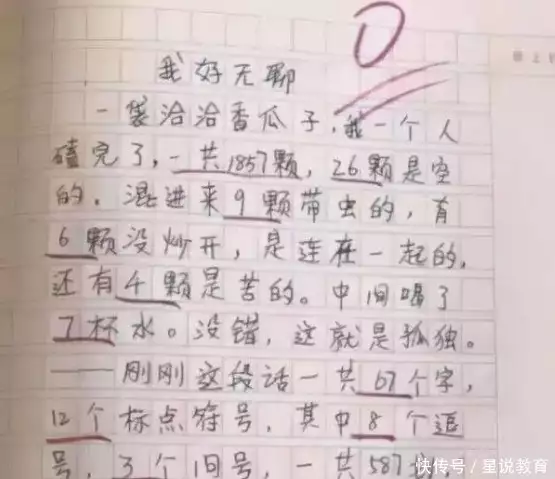 0
我好无聊
一袋洽洽香瓜子，我一个人
磕完了，一共1857颗，26颗是空
的，混进来9颗带虫的，有
6颗没炒开，是连在一起的，
还有4颗是苦的。中间喝了
7杯水。没错，这就是孤独。
——刚刚这段话一共67个字，
12个标点符号，其中8个逗
号，3个旧号，一共587
快传号/星说教育